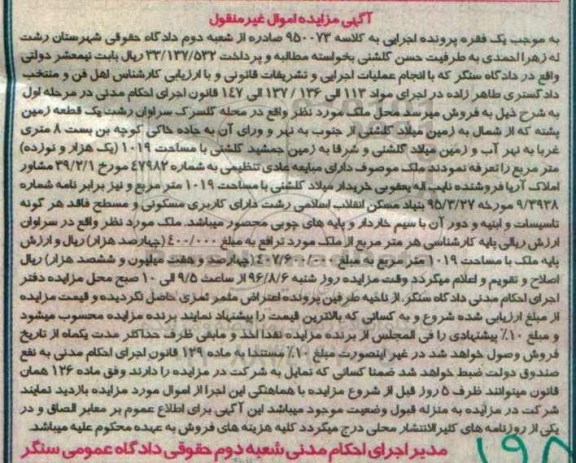 آگهی مزایده اموال غیرمنقول
به موجب یک فقره پرونده اجرایی به کلاسه ۹۵۰۰۷۳ صادره از شعبه دوم دادگاه حقوقی شهرستان رشت
له زهرا احمدی به طرفیت حسن گلشنی بخواسته مطالبه و پرداخت ۳۳/۱۳۷/۵۳۲ ریال بابت نیمعشر دولتی
واقع در دادگاه سنگر که با انجام عملیات اجرایی و تشریفات قانونی و با ارزیابی کارشناس اهل فن و منتخب
دادگستری طاهر زاده در اجرای مواد ۱۱۳ الی ۱۳۶ / ۱۳۷ الی ۱۴۷ قانون اجرای احکام مدنی در مرحله اول
به شرح ذیل به فروش میرسد محل ملک مورد نظر واقع در محله گلسرک سراوان رشت یک قطعه زمین
پشته که از شمال به زمین میلاد گلشنی از جنوب به نهر و ورای آن به جاده خاکی کوچه بن بست ۸ متری
غربا به نهر آب و زمین میلاد گلشنی و شرقا به زمین جمشید گلشنی با مساحت ۱۰۱۹ (یک هزار و نوزده)
متر مربع را تعرفه نمودند ملک موصوف دارای مبایعه عادی تنظیمی به شماره ۴۷۹۸۲ مورخ ۳۹/۲/۱ مشاور
املاک آریا فروشنده نایب اله یعقوبی خریدار میلاد گلشنی با مساحت ۱۰۱۹ متر مربع و نیز برابر نامه شماره
۹/۳۹۳۸ مورخه ۹۵/۳/۲۷ بنیاد مسکن انقلاب اسلامی رشت دارای کاربری مسکونی و مسطح فاقد هر گونه
تاسیسات و ابنیه و دور آن با سیم خاردار و پایه های چوبی محصور میباشد. ملک مورد نظر واقع در سراوان
ارزش ریالی پایه کارشناسی هر متر مربع از ملک مورد ترافع به مبلغ ۴۰۰/۰۰۰ (چهارصد هزار) ریال و ارزش
پایه ملک با مساحت ۱۰۱۹ متر مربع به مبلغ ۴۰۷/۶۰۰/۰۰۰ (چهارصد و هفت میلیون و ششصد هزار) ریال
اصلاح و تقویم و اعلام میگردد وقت مزایده روز شنبه ۹۶/۸/۶ از ساعت ۹/۵ الی ۱۰ صبح محل مزایده دفتر
اجرای احکام مدنی دادگاه سنگر. از ناحیه طرفین پرونده اعتراض مثمر ثمری حاصل نگردیده و قیمت مزایده
از مبلغ ارزیابی شده شروع و به کسانی که بالاترین قیمت را پیشنهاد نمایند برنده مزایده محسوب میشود
و مبلغ ۱۰٪ پیشنهادی را فی المجلس از برنده مزایده نقدا اخذ و مابقی ظرف حداکثر مدت یکماه از تاریخ
فروش وصول خواهد شد در غیر اینصورت مبلغ ۱۰٪ مستندا به ماده ۱۲۹ قانون اجرای احکام مدنی به نفع
صندوق دولت ضبط خواهد شد ضمنا کسانی که تمایل به شرکت در مزایده را دارند وفق ماده ۱۲۶ همان
قانون میتوانند ظرف ۵ روز قبل از شروع مزایده با هماهنگی این اجرا از اموال مورد مزایده بازدید نمایند
شرکت در مزایده به منزله قبول وضعیت موجود میباشد این آگهی برای اطلاع عموم بر معابر الصاق و در
یکی از روزنامه های کثیرالانتشار محلی درج میگردد کلیه هزینه های فروش به عهده محکوم علیه میباشد.
مدیر اجرای احکام مدنی شعبه دوم حقوقی دادگاه عمومی سنگر